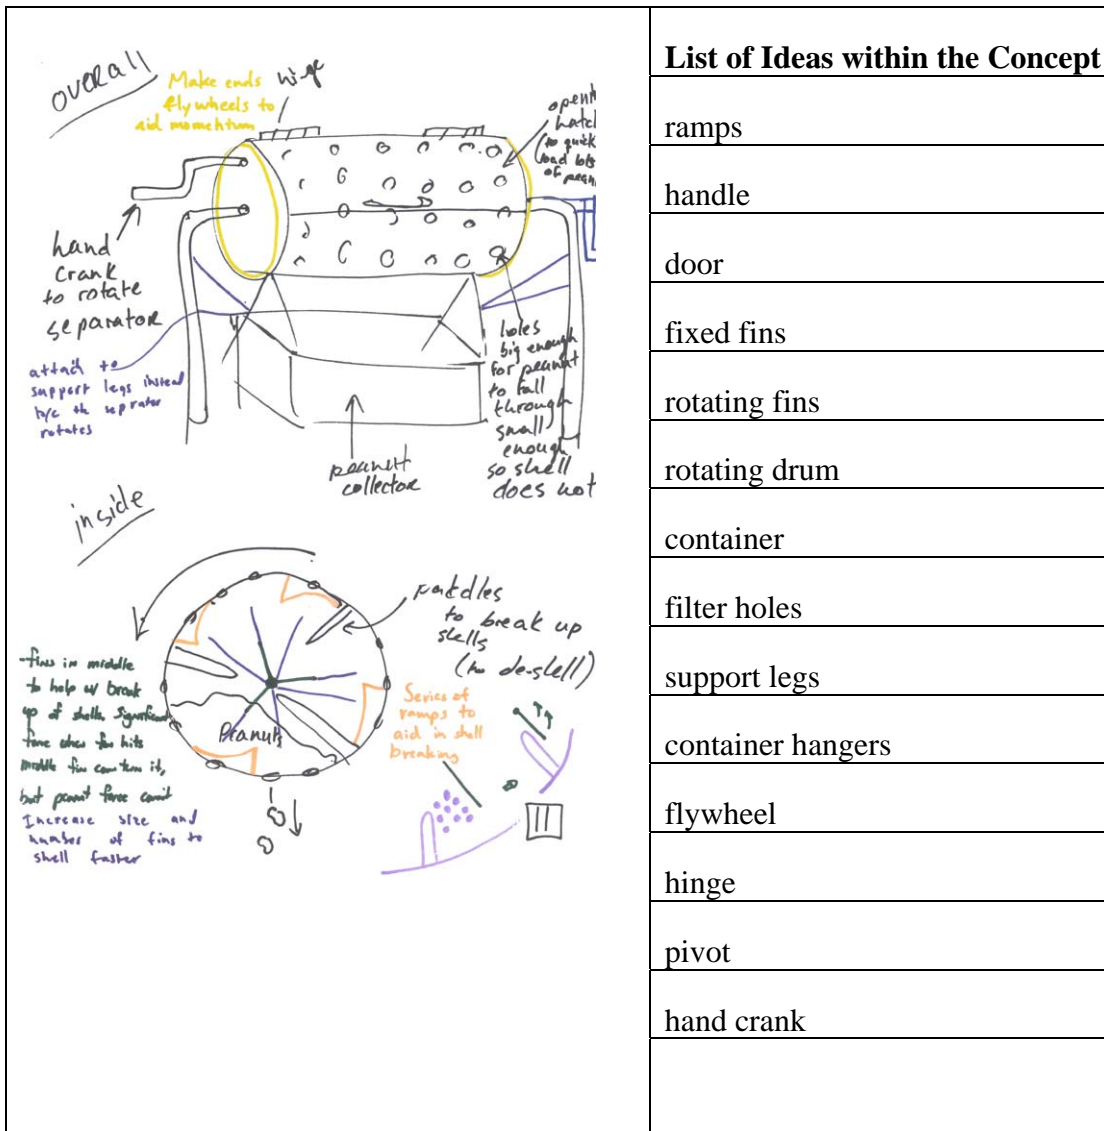 overall
Make ends
flywheels to
aid momentum
hinge
hatch
of
hand
crank
to rotate
separator
attach to
support legs instead
b/c the seprator
rotates
holes
big enough
for peanut
to fall
through
small
enough
so shell
does not
peanut
collector
inside
paddles
to break up
shells
(to de-shell)
-fins in middle
to help w/ break
up of shells. Significant
force when fin hits
middle fin can turn it,
but peanut force can't
Increase size and
number of fins to
shell faster
Peanuts
Series of
ramps to
aid in shell
breaking
List of Ideas within the Concept
ramps
handle
door
fixed fins
rotating fins
rotating drum
container
filter holes
support legs
container hangers
flywheel
hinge
pivot
hand crank